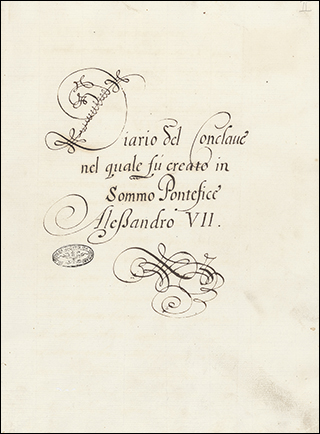 Diario del Conclaue
nel quale fù creato in
Sommo Pontefice
Aleßandro VII.